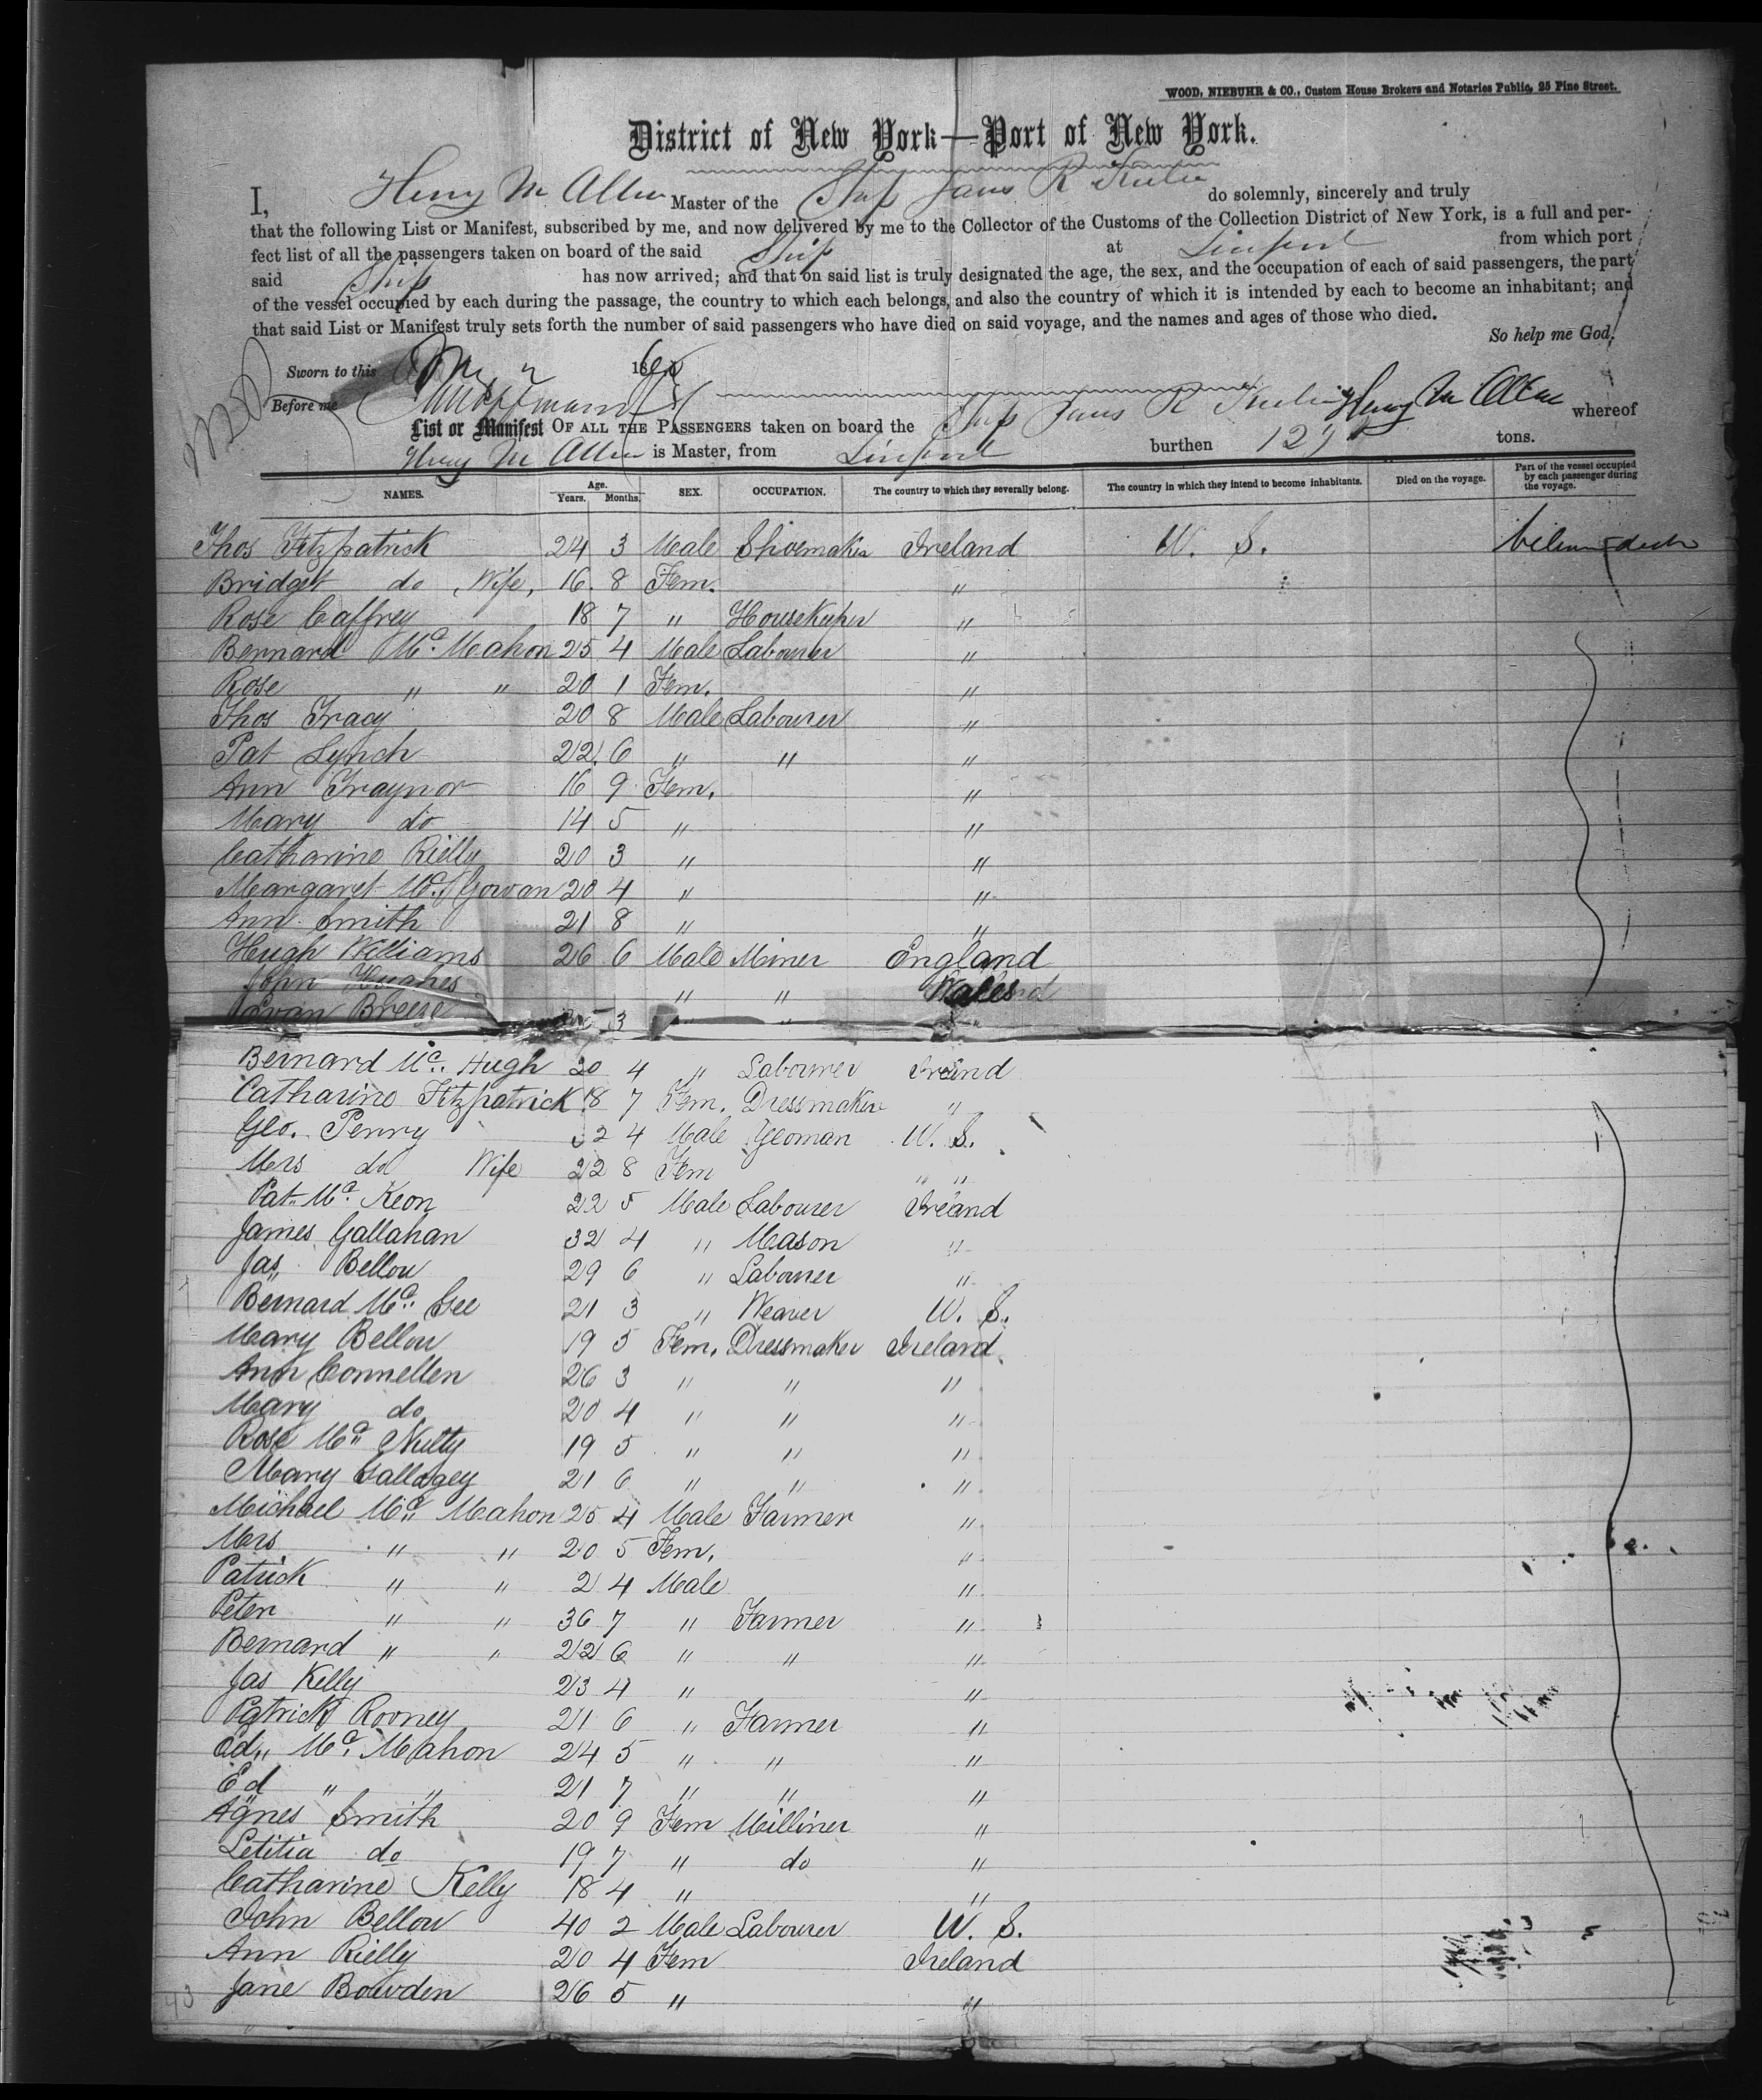 WOOD, NIEBUHR & CO., Custom House Brokers and Notaries Public, 25 Pine Street.
District of New York—Port of New York.
I, Henry M Allen Master of the Ship do solemnly, sincerely and truly
that the following List or Manifest, subscribed by me, and now delivered by me to the Collector of the Customs of the Collection District of New York, is a full and per-
fect list of all the passengers taken on board of the said Ship at from which port
said Ship has now arrived; and that on said list is truly designated the age, the sex, and the occupation of each of said passengers, the part
of the vessel occupied by each during the passage, the country to which each belongs, and also the country of which it is intended by each to become an inhabitant; and
that said List or Manifest truly sets forth the number of said passengers who have died on said voyage, and the names and ages of those who died.
So help me God.
Sworn to this 186
Before me Henry M Allen
List or Manifest OF ALL THE PASSENGERS taken on board the Ship whereof
Henry M Allen is Master, from burthen tons.
NAMES. Age. Years. Months. SEX. OCCUPATION. The country to which they severally belong. The country in which they intend to become inhabitants. Died on the voyage. Part of the vessel occupied by each passenger during the voyage.
Thos Fitzpatrick 24 3 Male Shoemaker Ireland U. S.
Bridget do Wife, 16 8 Fem. "
Rose Caffrey 18 7 " Housekeeper "
Bernard Mc. Mahon 25 4 Male Labourer "
Rose " " 20 1 Fem. "
Thos Tracy 20 8 Male Labourer "
Pat Lynch 22 6 " " "
Ann Traynor 16 9 Fem. "
Mary do 14 5 " "
Catharine Rielly 20 3 " "
Margaret Mc. Gowan 20 4 " "
Ann Smith 21 8 " "
Hugh Williams 26 6 Male Miner England
John Hughes " " Wales
Evan Breeze 3 " "
Bernard Mc. Hugh 20 4 " Labourer Ireland
Catharine Fitzpatrick 18 7 Fem. Dressmaker "
Geo. Perry 32 4 Male Yeoman U. S.
Mrs do Wife 22 8 Fem " "
Pat Mc. Keon 22 5 Male Labourer Ireland
James Gallahan 32 4 " Mason "
Jas, Bellow 29 6 " Labourer "
Bernard Mc. Gee 21 3 " Weaver U. S.
Mary Bellow 19 5 Fem. Dressmaker Ireland
Ann Connellen 26 3 " " "
Mary do 20 4 " " "
Rose Mc Nulty 19 5 " " "
Mary Gallagey 21 6 " " "
Michael Mc Mahon 25 4 Male Farmer "
Mrs " " 20 5 Fem. "
Patrick " " 2 4 Male "
Peter " " 36 7 " Farmer "
Bernard " " 22 6 " " "
Jas Kelly 23 4 " "
Patrick Rooney 21 6 " Farmer "
Ad,, Mc. Mahon 24 5 " " "
Ed " " 21 7 " " "
Agnes Smith 20 9 Fem Milliner "
Letitia do 19 7 " do "
Catharine Kelly 18 4 " "
John Bellow 40 2 Male Labourer U. S.
Ann Rielly 20 4 Fem Ireland
Jane Bowden 26 5 " "